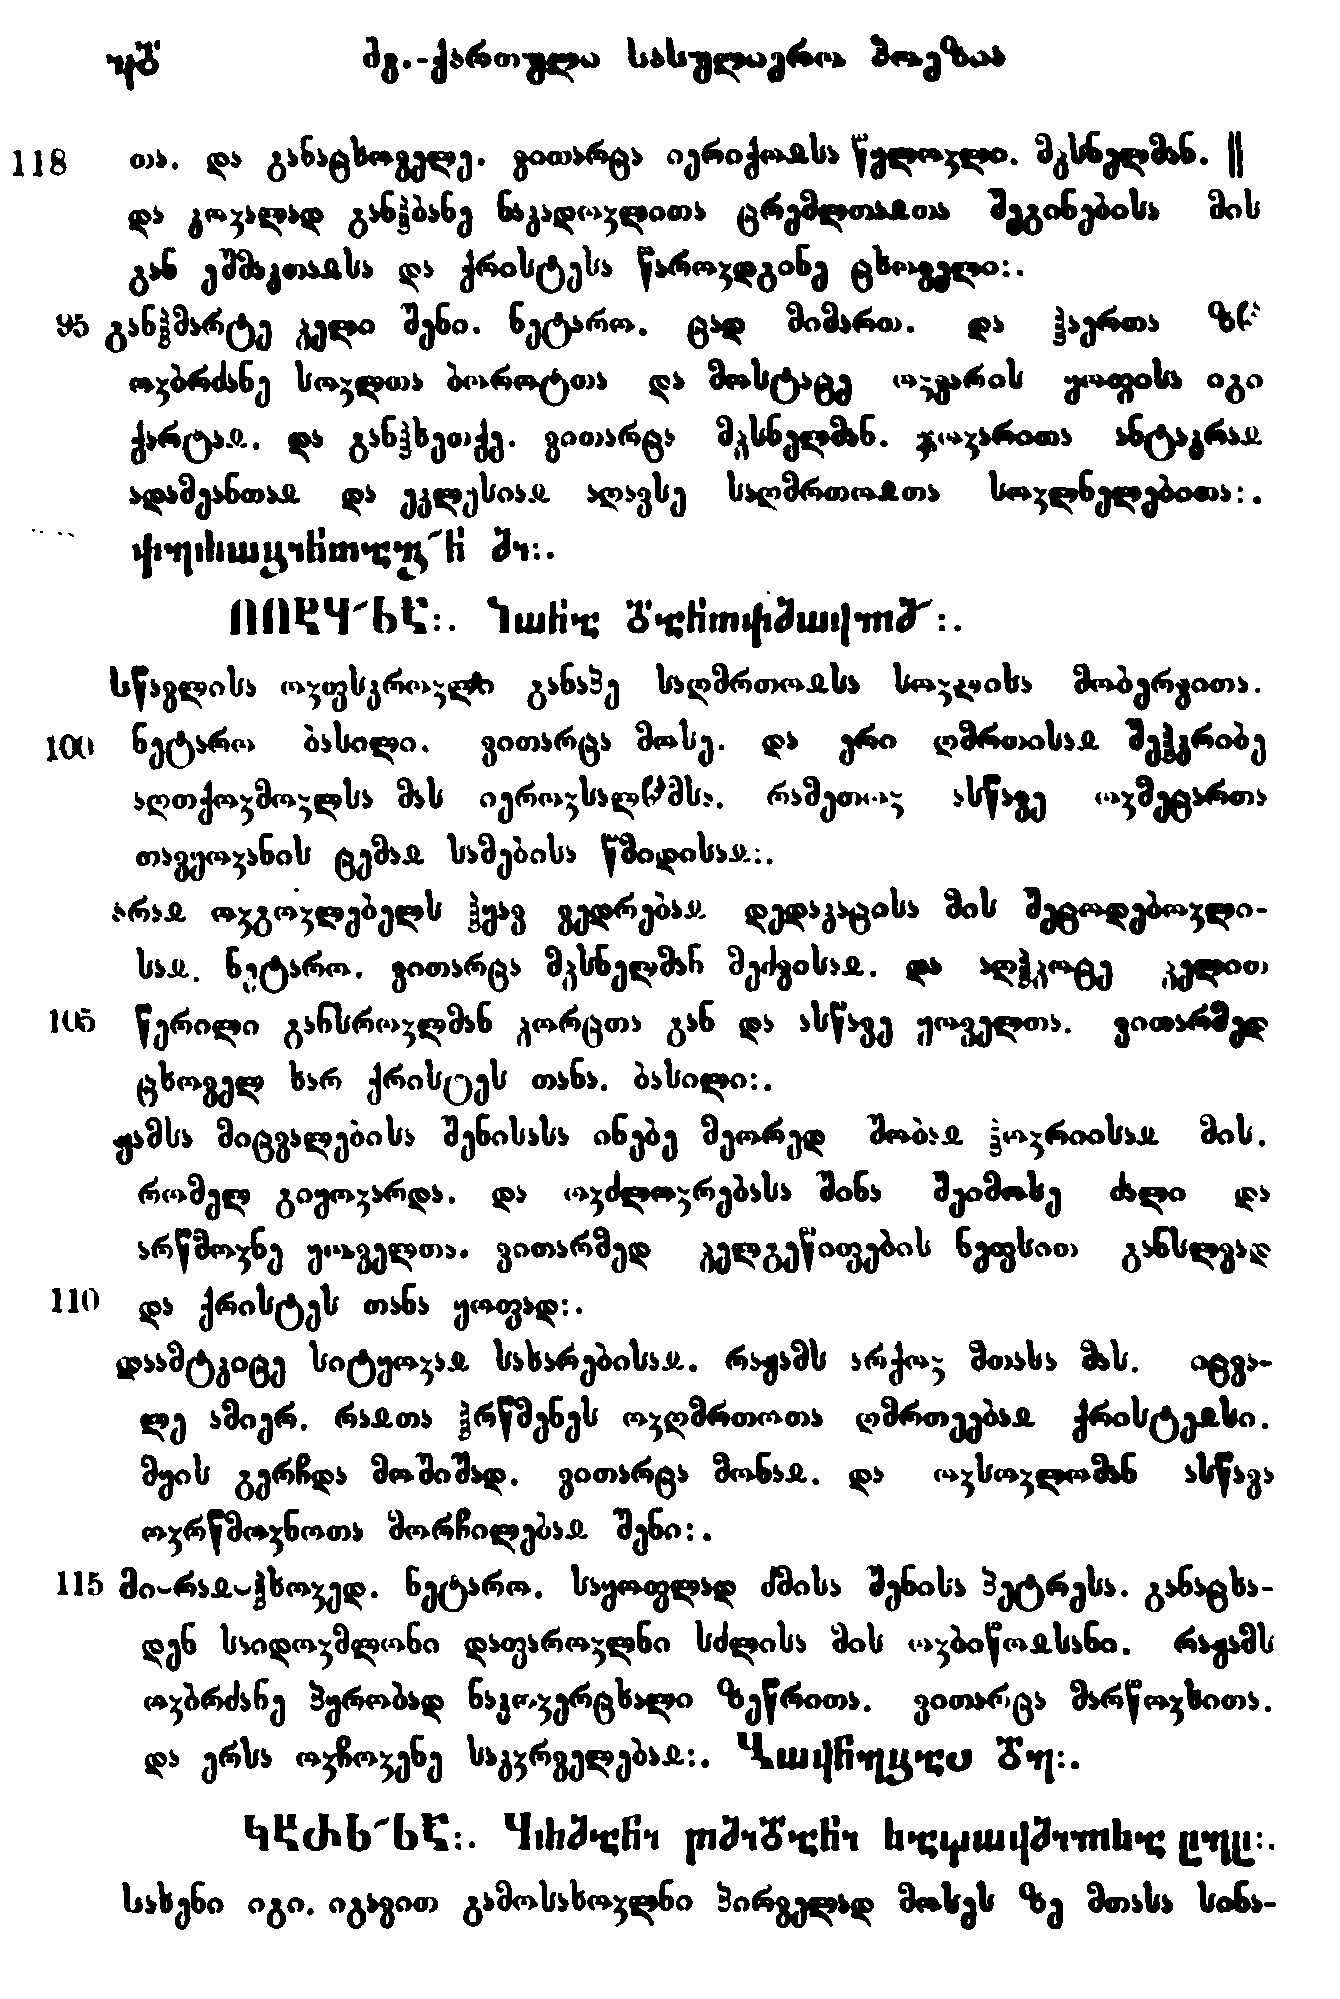 ჲბ ძვ.-ქართული სასულიერო პოეზია
118 თა. და განაცხოველე. ვითარცა იერიქოჲსა წულოჳლი. მჴსნელმან. ||
და კოჳალად განჰბანე ნაკადოჳლითა ცრემლთაჲთა შეგინებისა მის
გან ეშმაკთაჲსა და ქრისტესა წაროჳდგინე ცხოველი:.
95 განჰმარტე ჴელი შენი. ნეტარო. ცად მიმართ. და ჰაერთა ზ~
ოჳბრძანე სოჳლთა ბოროტთა და მოსტაცე ოჳვარის ყოფისა იგი
ქარტაჲ. და განჰხეთქე. ვითარცა მჴსნელმან. ჯოჳარითა ანტაკრაჲ
ადამეანთაჲ და ეკლესიაჲ აღავსე საღმრთოჲთა სოჳლნელებითა:.
სწავლისა ოჳფსკროჳლი განაპე საღმრთოჲსა სოჳლისა მობერვითა.
100 ნეტარო ბასილი. ვითარცა მოსე. და ერი ღმრთისაჲ შეჰკრიბე
აღთქოჳმოჳლსა მას იეროჳსალჱმსა. რამეთოჳ ასწავე ოჳმეცართა
თავყოჳანის ცემაჲ სამებისა წმიდისაჲ:.
არაჲ ოჳგოჳლებელს ჰყავ ვედრებაჲ დედაკაცისა მის შეცოდებოჳლი-
საჲ. ნეტარო. ვითარცა მჴსნელმან მეძვისაჲ. და აღჰჴოცე ჴელით
105 წერილი განსროჳლმან ჴორცთა გან და ასწავე ყოველთა. ვითარმედ
ცხოველ ხარ ქრისტეს თანა. ბასილი:.
ჟამსა მიცვალებისა შენისასა ინებე მეორედ შობაჲ ჰოჳრიისაჲ მის.
რომელ გიყოჳარდა. და ოჳძლოჳრებასა შინა შეიმოსე ძალი და
არწმოჳნე ყოაველთა. ვითარმედ ჴელგეწიფების ნეფსით განსლვად
110 და ქრისტეს თანა ყოფად:.
დაამტკიცე სიტყოჳაჲ სახარებისაჲ. რაჟამს არქოჳ მთასა მას. იცვა-
ლე ამიერ. რაჲთა ჰრწმენეს ოჳღმრთოთა ღმრთეებაჲ ქრისტეჲსი.
მყის გერჩდა მოშიშად. ვითარცა მონაჲ. და ოჳსოჳლომან ასწავა
ოჳრწმოჳნოთა მორჩილებაჲ შენი:.
115 მი-რაჲ-ჰხოჳედ. ნეტარო. საყოფლად ძმისა შენისა პეტრესა. განაცხა-
დენ საიდოჳმლონი დაფაროჳლნი სძლისა მის ოჳბიწოჲსანი. რაჟამს
ოჳბრძანე პყრობად ნაკოჳერცხალი ზეწრითა. ვითარცა მარწოჳხითა.
და ერსა ოჳჩოჳენე საკჳრველებაჲ:.
სახენი იგი. იგავით გამოსახოჳლნი პირველად მოსეს ზე მთასა სინა-